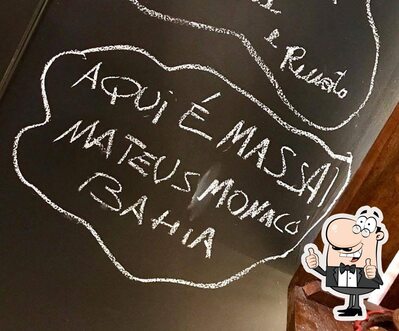 e Renato
AQUI É MASSA!
MATEUS MONACO
BAHIA